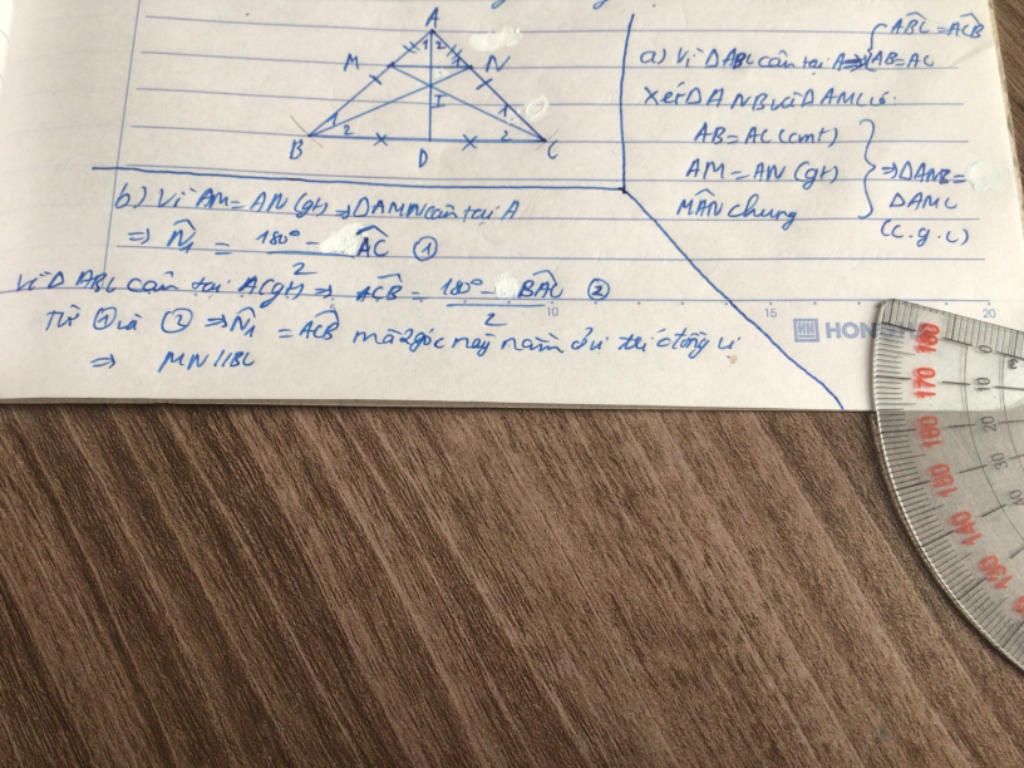 A
1 2
M N
I
1 1
2 2
B D C
a) Vì ΔABC cân tại A ⇒ { \widehat{ABC} = \widehat{ACB}
AB = AC
Xét ΔANB và ΔAMC có:
AB = AC (cmt)
AM = AN (gt)
\widehat{MAN} chung
⇒ ΔANB =
ΔAMC
(c.g.c)
b) Vì AM = AN (gt) ⇒ ΔAMN cân tại A
⇒ \widehat{N_1} = 180° - \widehat{AC} ①
2
Vì ΔABC cân tại A (gt) ⇒ \widehat{ACB} = 180° - \widehat{BAC} ②
2
Từ ① và ② ⇒ \widehat{N_1} = \widehat{ACB} mà 2 góc này nằm ở vị trí đồng vị
⇒ MN // BC
10 15 20
HON
180 0
170 10
160 20
150 30
140 40
130